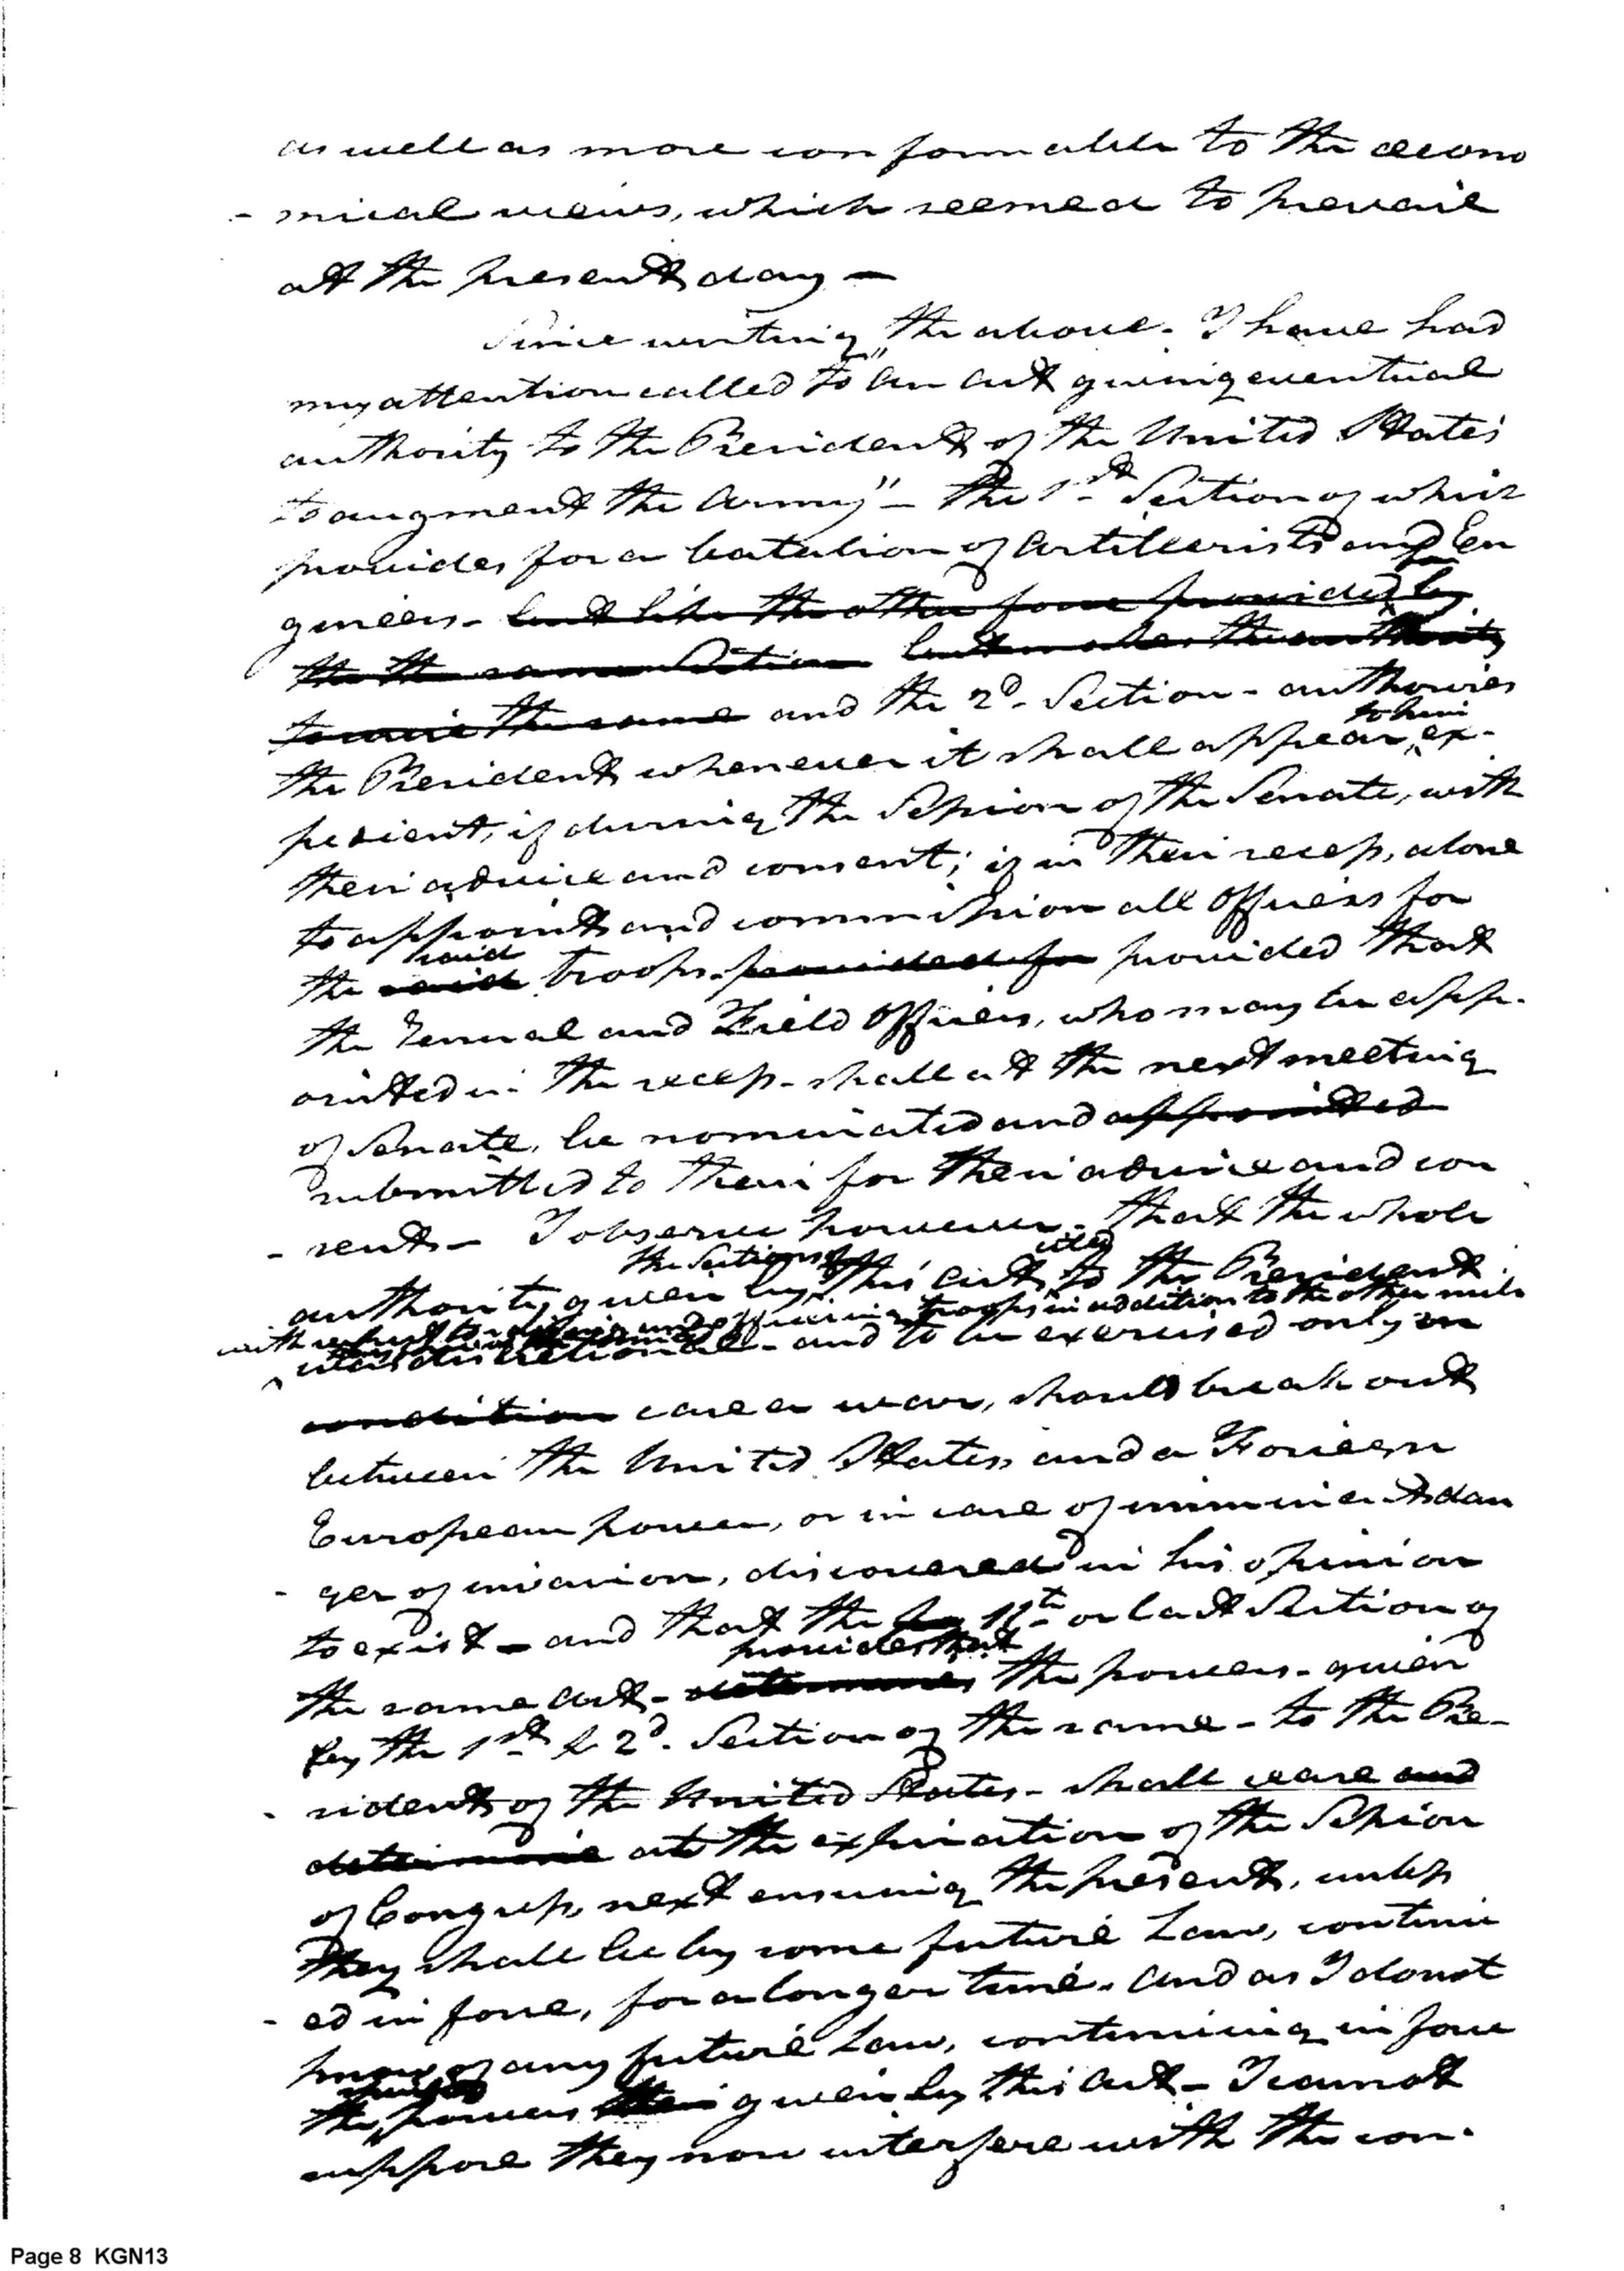 as well as more conformable to the œcono
- mical views, which seemed to prevail
at the present day —
Since writing the above - I have had
my attention called to "An act giving eventual
authority to the President of the United States
to augment the Army" - The 1st Section of which
provides for a batalion of Artillerists and En
gineers - but like the other force provided by
the the same Section but makes the authority
to raise the same and the 2d. Section - authorises
to him
the President whenever it shall appear ex-
pedient, if during the Session of the Senate, with
their advice and consent; if in their recess, alone
to appoint and commission all Officers for
said
the said troops - provided for provided that
the General and Field Officers, who may be app-
ointed in the recess - shall at the next meeting
of Senate, be nominated and appointed
submitted to them for their advice and con
- sent - I observe however - that the whole
the Sections of cited
authority given by this act to the President
with respect to raising and officering troops in addition to the other mili
discretional - and to be exercised only on
condition case a war, should break out
between the United States and a Foriegn
European power, or in case of imminent dan
- ger of invasion, discovered in his opinion
to exist - and that the 11th or last Section of
provides that
the same act - determines the powers - given
by the 1st & 2d. Section of the same - to the Pre-
- sident of the United States - shall cease and
determine at the expiration of the Session
of Congress, next ensuing the present, unless
they shall be by some future Law, continu
- ed in force, for a longer time. And as I do not
know of any future Law, continuing in force
the powers given by this act - I cannot
suppose they now interfere with the con-
Page 8 KGN13